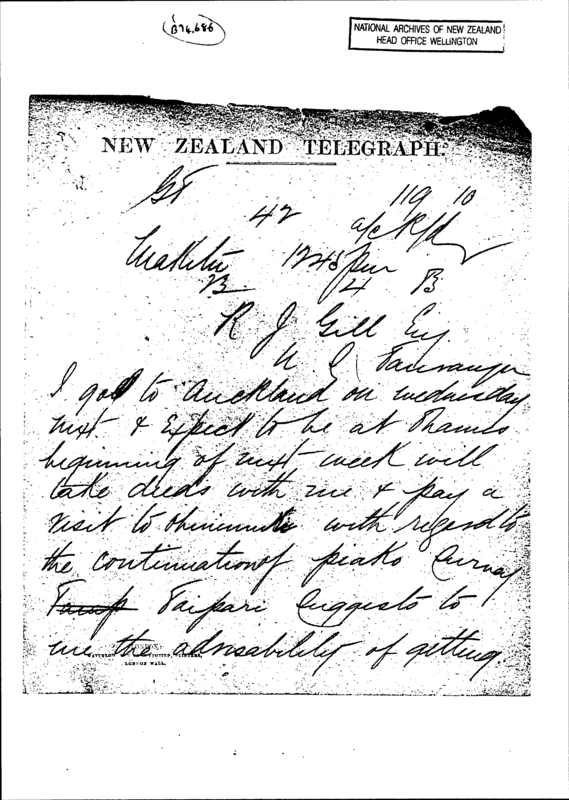 B74.686
NATIONAL ARCHIVES OF NEW ZEALAND
HEAD OFFICE WELLINGTON
NEW ZEALAND TELEGRAPH.
GT 119 10
42 a/c
Maketu 1245 pm
4 B
R J Gill Esq
Tauranga
I go to Auckland on wednesday
next & Expect to be at Thames
beginning of next week will
take deeds with me & pay a
visit to Ohinemuri with regard to
the continuation of piako Survey
Taipari Suggests to
me the advisability of getting
LIMITED, PRINTERS,
LONDON WALL.